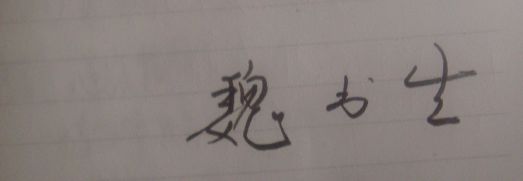 魏书生